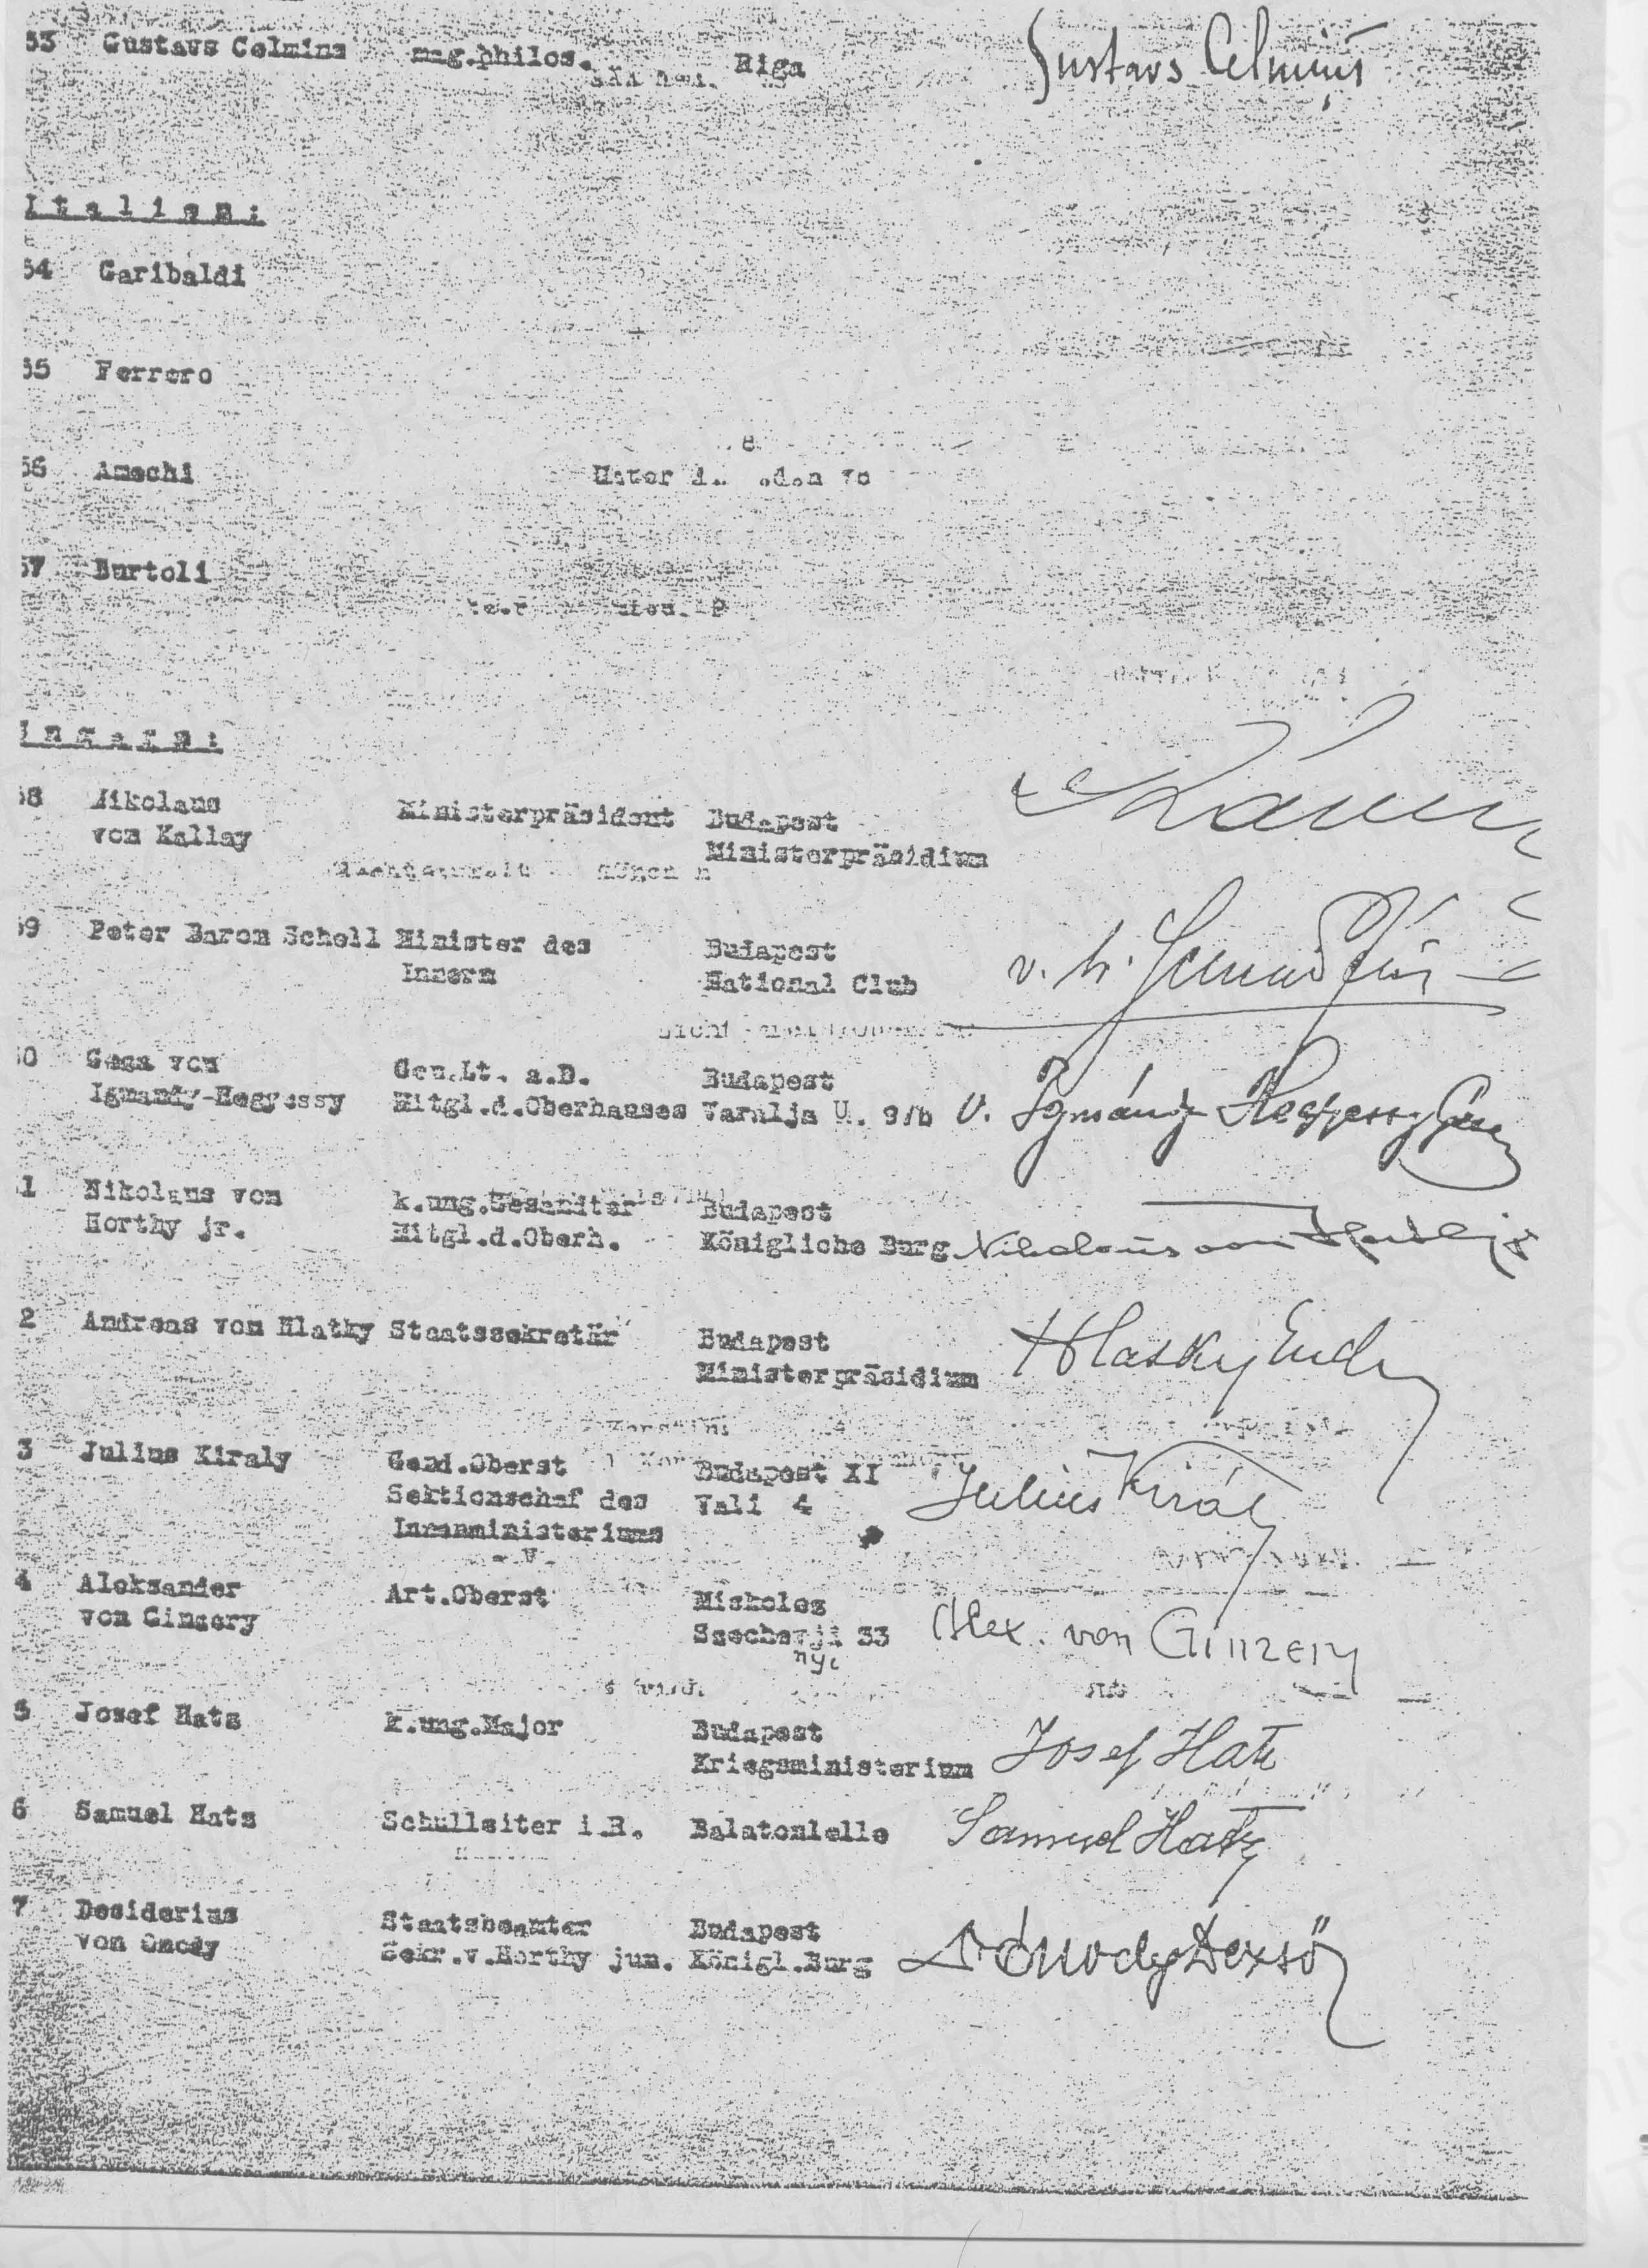 53 Gustavs Celmins mag.philos. Riga Gustavs Celmiņš
Italien:
54 Garibaldi
55 Ferrero
56 Amechi
57 Burtoli
Ungarn:
58 Nikolaus Ministerpräsident Budapest
von Kallay Ministerpräsidium
59 Peter Baron Schell Minister des Budapest
Innern National Club
60 Geza von Gen.Lt. a.D. Budapest
Igmandy-Hegyessy Mitgl.d.Oberhauses Varalja U. 9/b v. Igmándy Hegyessy Géza
1 Nikolaus von k.ung.Gesandter Budapest
Horthy jr. Mitgl.d.Oberh. Königliche Burg Nikolaus von Horthy jr
2 Andreas von Hlatky Staatssekretär Budapest
Ministerpräsidium
3 Julius Kiraly Gend.Oberst Budapest XI Julius Király
Sektionschef des Vali 4
Innenministeriums
4 Aleksander Art.Oberst Miskolcz
von Ginzery 33 Alex. von Ginzery
nyi
5 Josef Hatz k.ung.Major Budapest
Kriegsministerium Josef Hatz
6 Samuel Hatz Schulleiter i.R. Balatonlelle Samuel Hatz
7 Desiderius Staatsbeamter Budapest
von Onody Sekr.v.Horthy jun. Königl.Burg Ónody Dezső